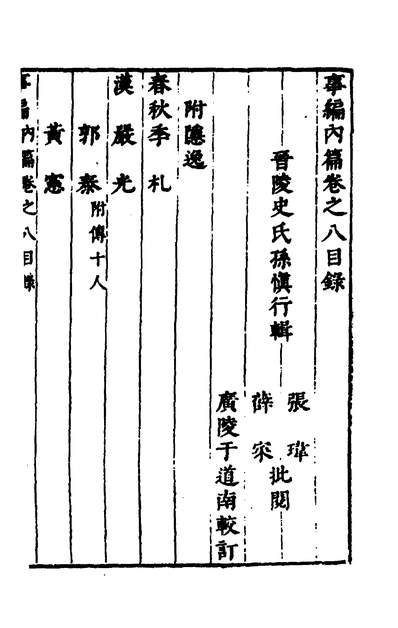 事編內篇卷之八目錄
晉陵史氏孫慎行輯
張瑋
薛寀批閱
廣陵于道南較訂
附隱逸
春秋季札
漢嚴光
郭泰附傳十人
黃憲
事編內篇卷之八目錄